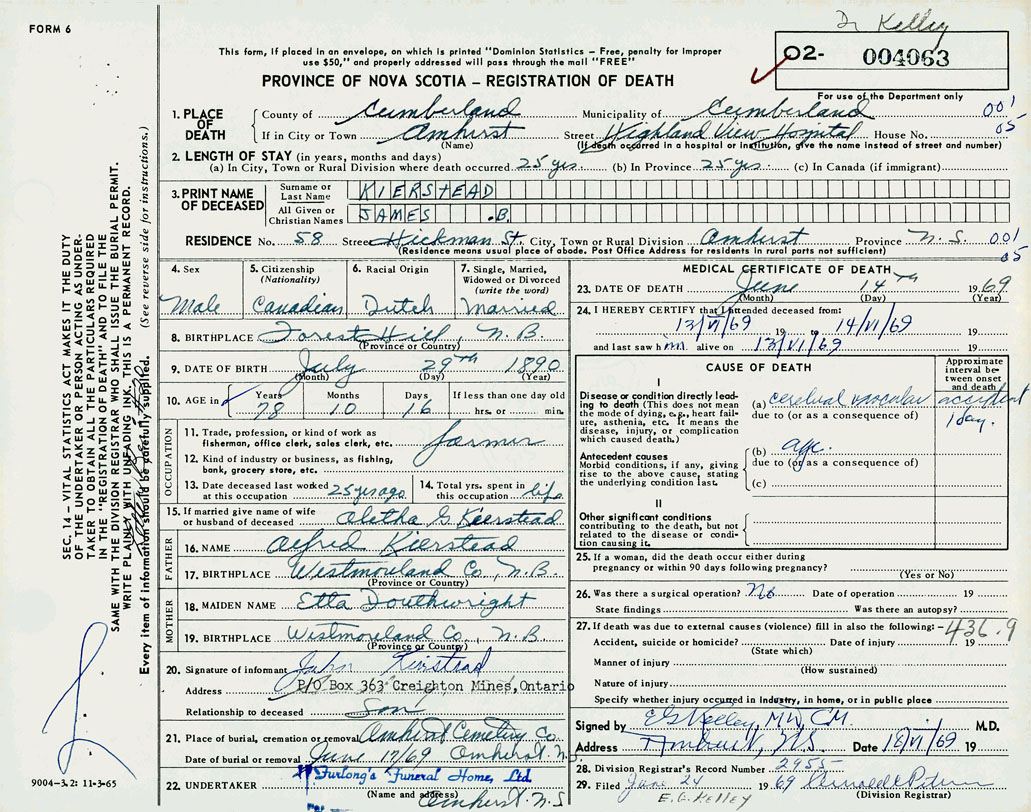 FORM 6
Dr Kelley
This form, if placed in an envelope, on which is printed "Dominion Statistics – Free, penalty for improper
use $50," and properly addressed will pass through the mail "FREE"
O2- 004063
PROVINCE OF NOVA SCOTIA – REGISTRATION OF DEATH
For use of the Department only
1. PLACE OF DEATH County of Cumberland Municipality of Cumberland 001
If in City or Town Amherst Street Highland View Hospital House No. 05
(Name) (If death occurred in a hospital or institution, give the name instead of street and number)
2. LENGTH OF STAY (in years, months and days)
(a) In City, Town or Rural Division where death occurred 25 yrs. (b) In Province 25 yrs. (c) In Canada (if immigrant)
3. PRINT NAME OF DECEASED Surname or Last Name KIERSTEAD
All Given or Christian Names JAMES .B.
RESIDENCE No. 58 Street Hickman St. City, Town or Rural Division Amherst Province N.S. 001
(Residence means usual place of abode. Post Office Address for residents in rural parts not sufficient) 05
4. Sex 5. Citizenship (Nationality) 6. Racial Origin 7. Single, Married, Widowed or Divorced (write the word)
Male Canadian Dutch Married
8. BIRTHPLACE Forest Hill, N.B.
(Province or Country)
9. DATE OF BIRTH July 29th 1890
(Month) (Day) (Year)
10. AGE in Years Months Days If less than one day old
78 10 16 hrs. or min.
OCCUPATION
11. Trade, profession, or kind of work as fisherman, office clerk, sales clerk, etc. farmer
12. Kind of industry or business, as fishing, bank, grocery store, etc.
13. Date deceased last worked at this occupation 25 yrs ago 14. Total yrs. spent in this occupation life
15. If married give name of wife or husband of deceased Aletha G Kierstead
FATHER
16. NAME Alfred Kierstead
17. BIRTHPLACE Westmorland Co., N.B.
(Province or Country)
MOTHER
18. MAIDEN NAME Etta Douthwright
19. BIRTHPLACE Westmoreland Co., N.B.
(Province or Country)
20. Signature of informant John Kierstead
Address P/O Box 363 Creighton Mines, Ontario
Relationship to deceased Son
21. Place of burial, cremation or removal Amherst Cemetery Co.
Date of burial or removal June 17/69 Amherst N.
22. UNDERTAKER Furlong's Funeral Home, Ltd.
(Name and address) Amherst. N.S
MEDICAL CERTIFICATE OF DEATH
23. DATE OF DEATH June 14th 1969
(Month) (Day) (Year)
24. I HEREBY CERTIFY that I attended deceased from:
13/VI/69 19 to 14/VI/69 19
and last saw him alive on 13/VI/69 19
CAUSE OF DEATH
Approximate interval between onset and death
I
Disease or condition directly leading to death (This does not mean the mode of dying, e.g., heart failure, asthenia, etc. It means the disease, injury, or complication which caused death.)
(a) cerebral vascular accident
due to (or as a consequence of) 1 day.
Antecedent causes
Morbid conditions, if any, giving rise to the above cause, stating the underlying condition last.
(b) age.
due to (or as a consequence of)
(c)
II
Other significant conditions contributing to the death, but not related to the disease or condition causing it.
25. If a woman, did the death occur either during pregnancy or within 90 days following pregnancy?
(Yes or No)
26. Was there a surgical operation? No Date of operation 19
State findings Was there an autopsy?
27. If death was due to external causes (violence) fill in also the following: - 436.9
Accident, suicide or homicide? Date of injury 19
(State which)
Manner of injury
(How sustained)
Nature of injury
Specify whether injury occurred in industry, in home, or in public place
Signed by E G Kelley, MD, CM. M.D.
Address Amherst, N.S. Date 18/VI/69 19
28. Division Registrar's Record Number 2955
29. Filed June 24 1969
(Division Registrar)
E. G. KELLEY
SEC. 14 – VITAL STATISTICS ACT MAKES IT THE DUTY
OF THE UNDERTAKER OR PERSON ACTING AS UNDER-
TAKER TO OBTAIN ALL THE PARTICULARS REQUIRED
IN THE "REGISTRATION OF DEATH" AND TO FILE THE
SAME WITH THE DIVISION REGISTRAR WHO SHALL ISSUE THE BURIAL PERMIT.
WRITE PLAINLY WITH UNFADING INK. THIS IS A PERMANENT RECORD.
Every item of information should be carefully supplied. (See reverse side for instructions.)
9004-3.2: 11-3-65